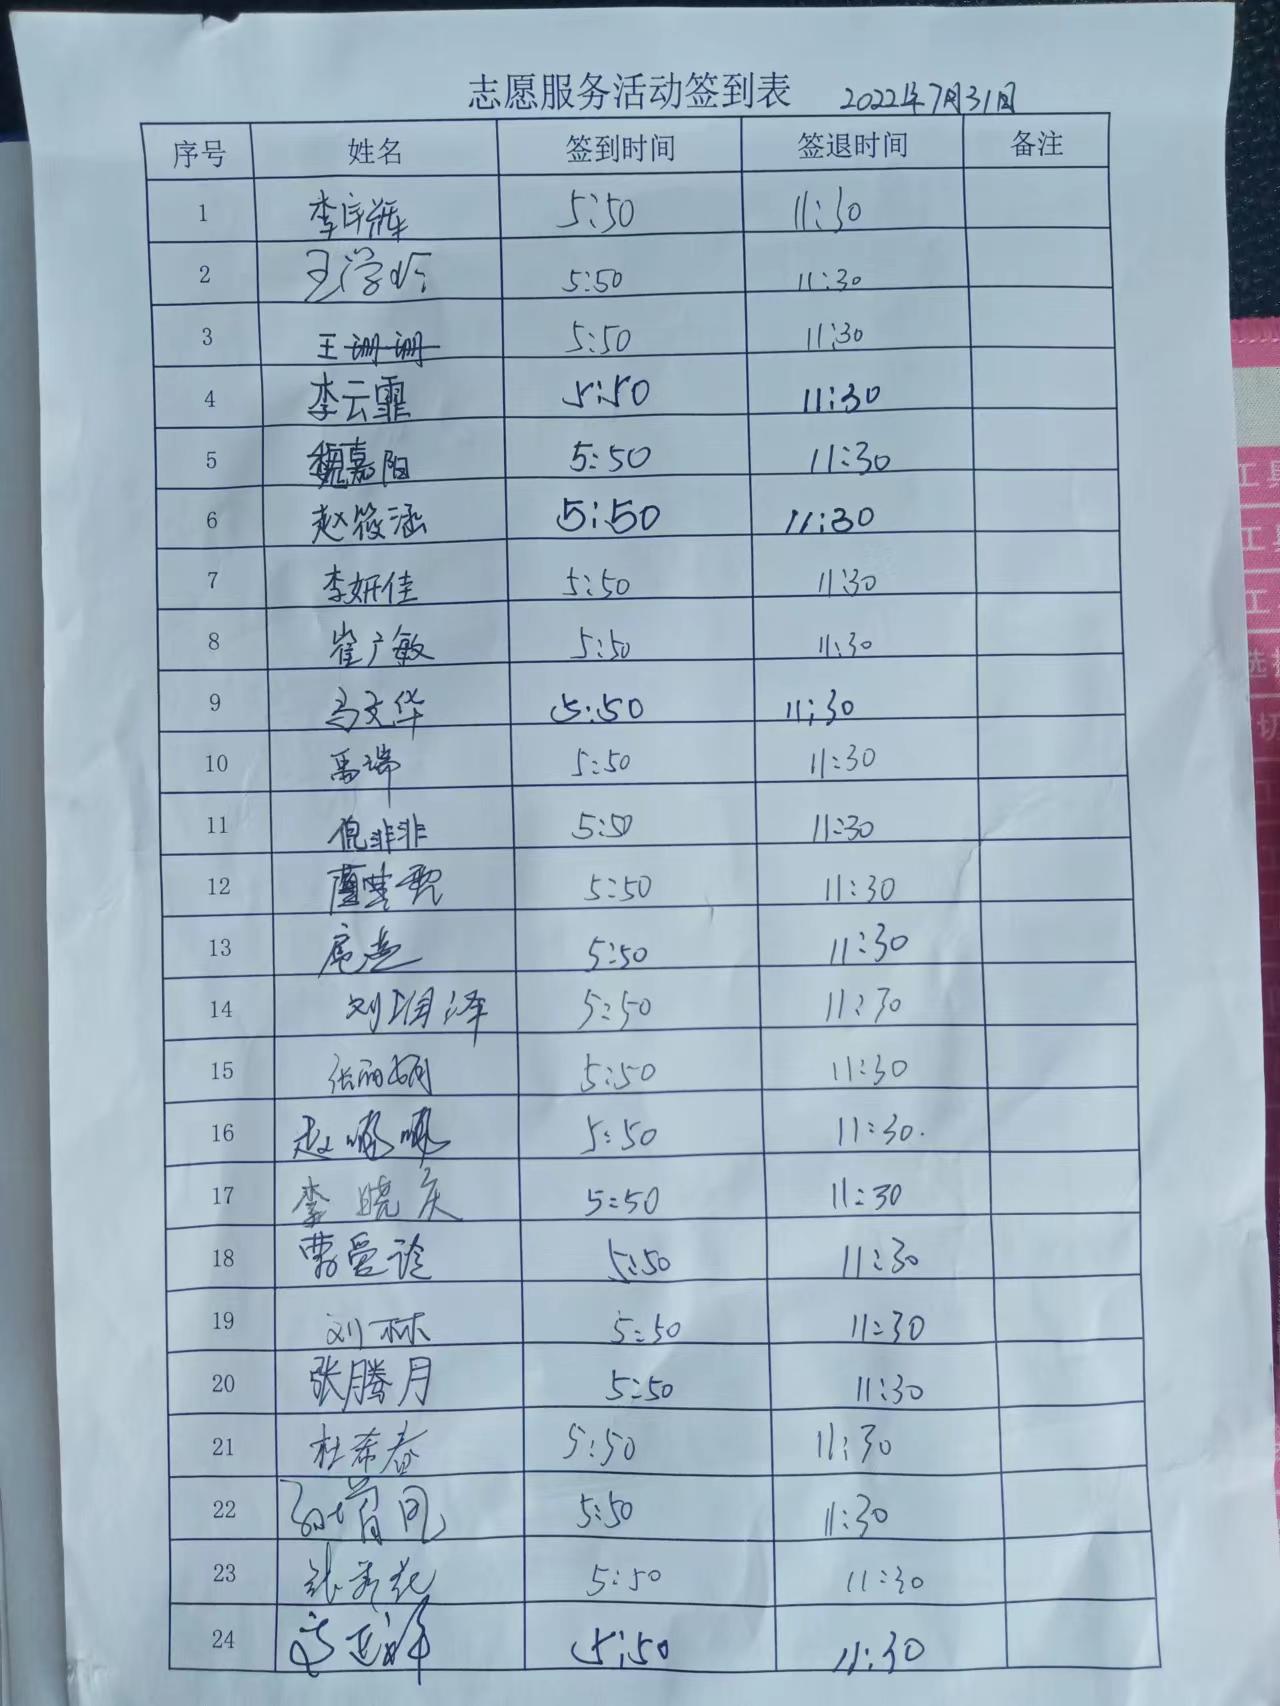 志愿服务活动签到表 2022年7月31日
序号 姓名 签到时间 签退时间 备注
1 李 5:50 11:30
2 王学 5:50 11:30
3 王珊珊 5:50 11:30
4 李云霏 5:50 11:30
5 魏嘉阳 5:50 11:30
6 赵筱涵 5:50 11:30
7 李妍佳 5:50 11:30
8 崔广敏 5:50 11:30
9 马文华 5:50 11:30
10 禹瑞 5:50 11:30
11 倪非非 5:50 11:30
12 5:50 11:30
13 5:50 11:30
14 刘润泽 5:50 11:30
15 张丽娟 5:50 11:30
16 赵 5:50 11:30
17 李晓庆 5:50 11:30
18 曹爱玲 5:50 11:30
19 刘林 5:50 11:30
20 张腾月 5:50 11:30
21 杜希春 5:50 11:30
22 5:50 11:30
23 张秀花 5:50 11:30
24 5:50 11:30
工具
工具
工
选择
切